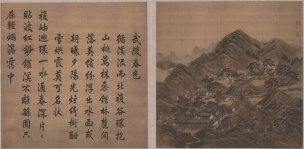 武陵春色
循溪流而北複谷環抱
山桃萬株參錯林麓間
落英繽紛浮出水面或
朝曦夕陽光炫綺樹酣
雪烘霞莫可名狀
複岫迴環一水通春深片片
貼波紅鈔鑼溪不離繁囿只
在輕烟澹靄中